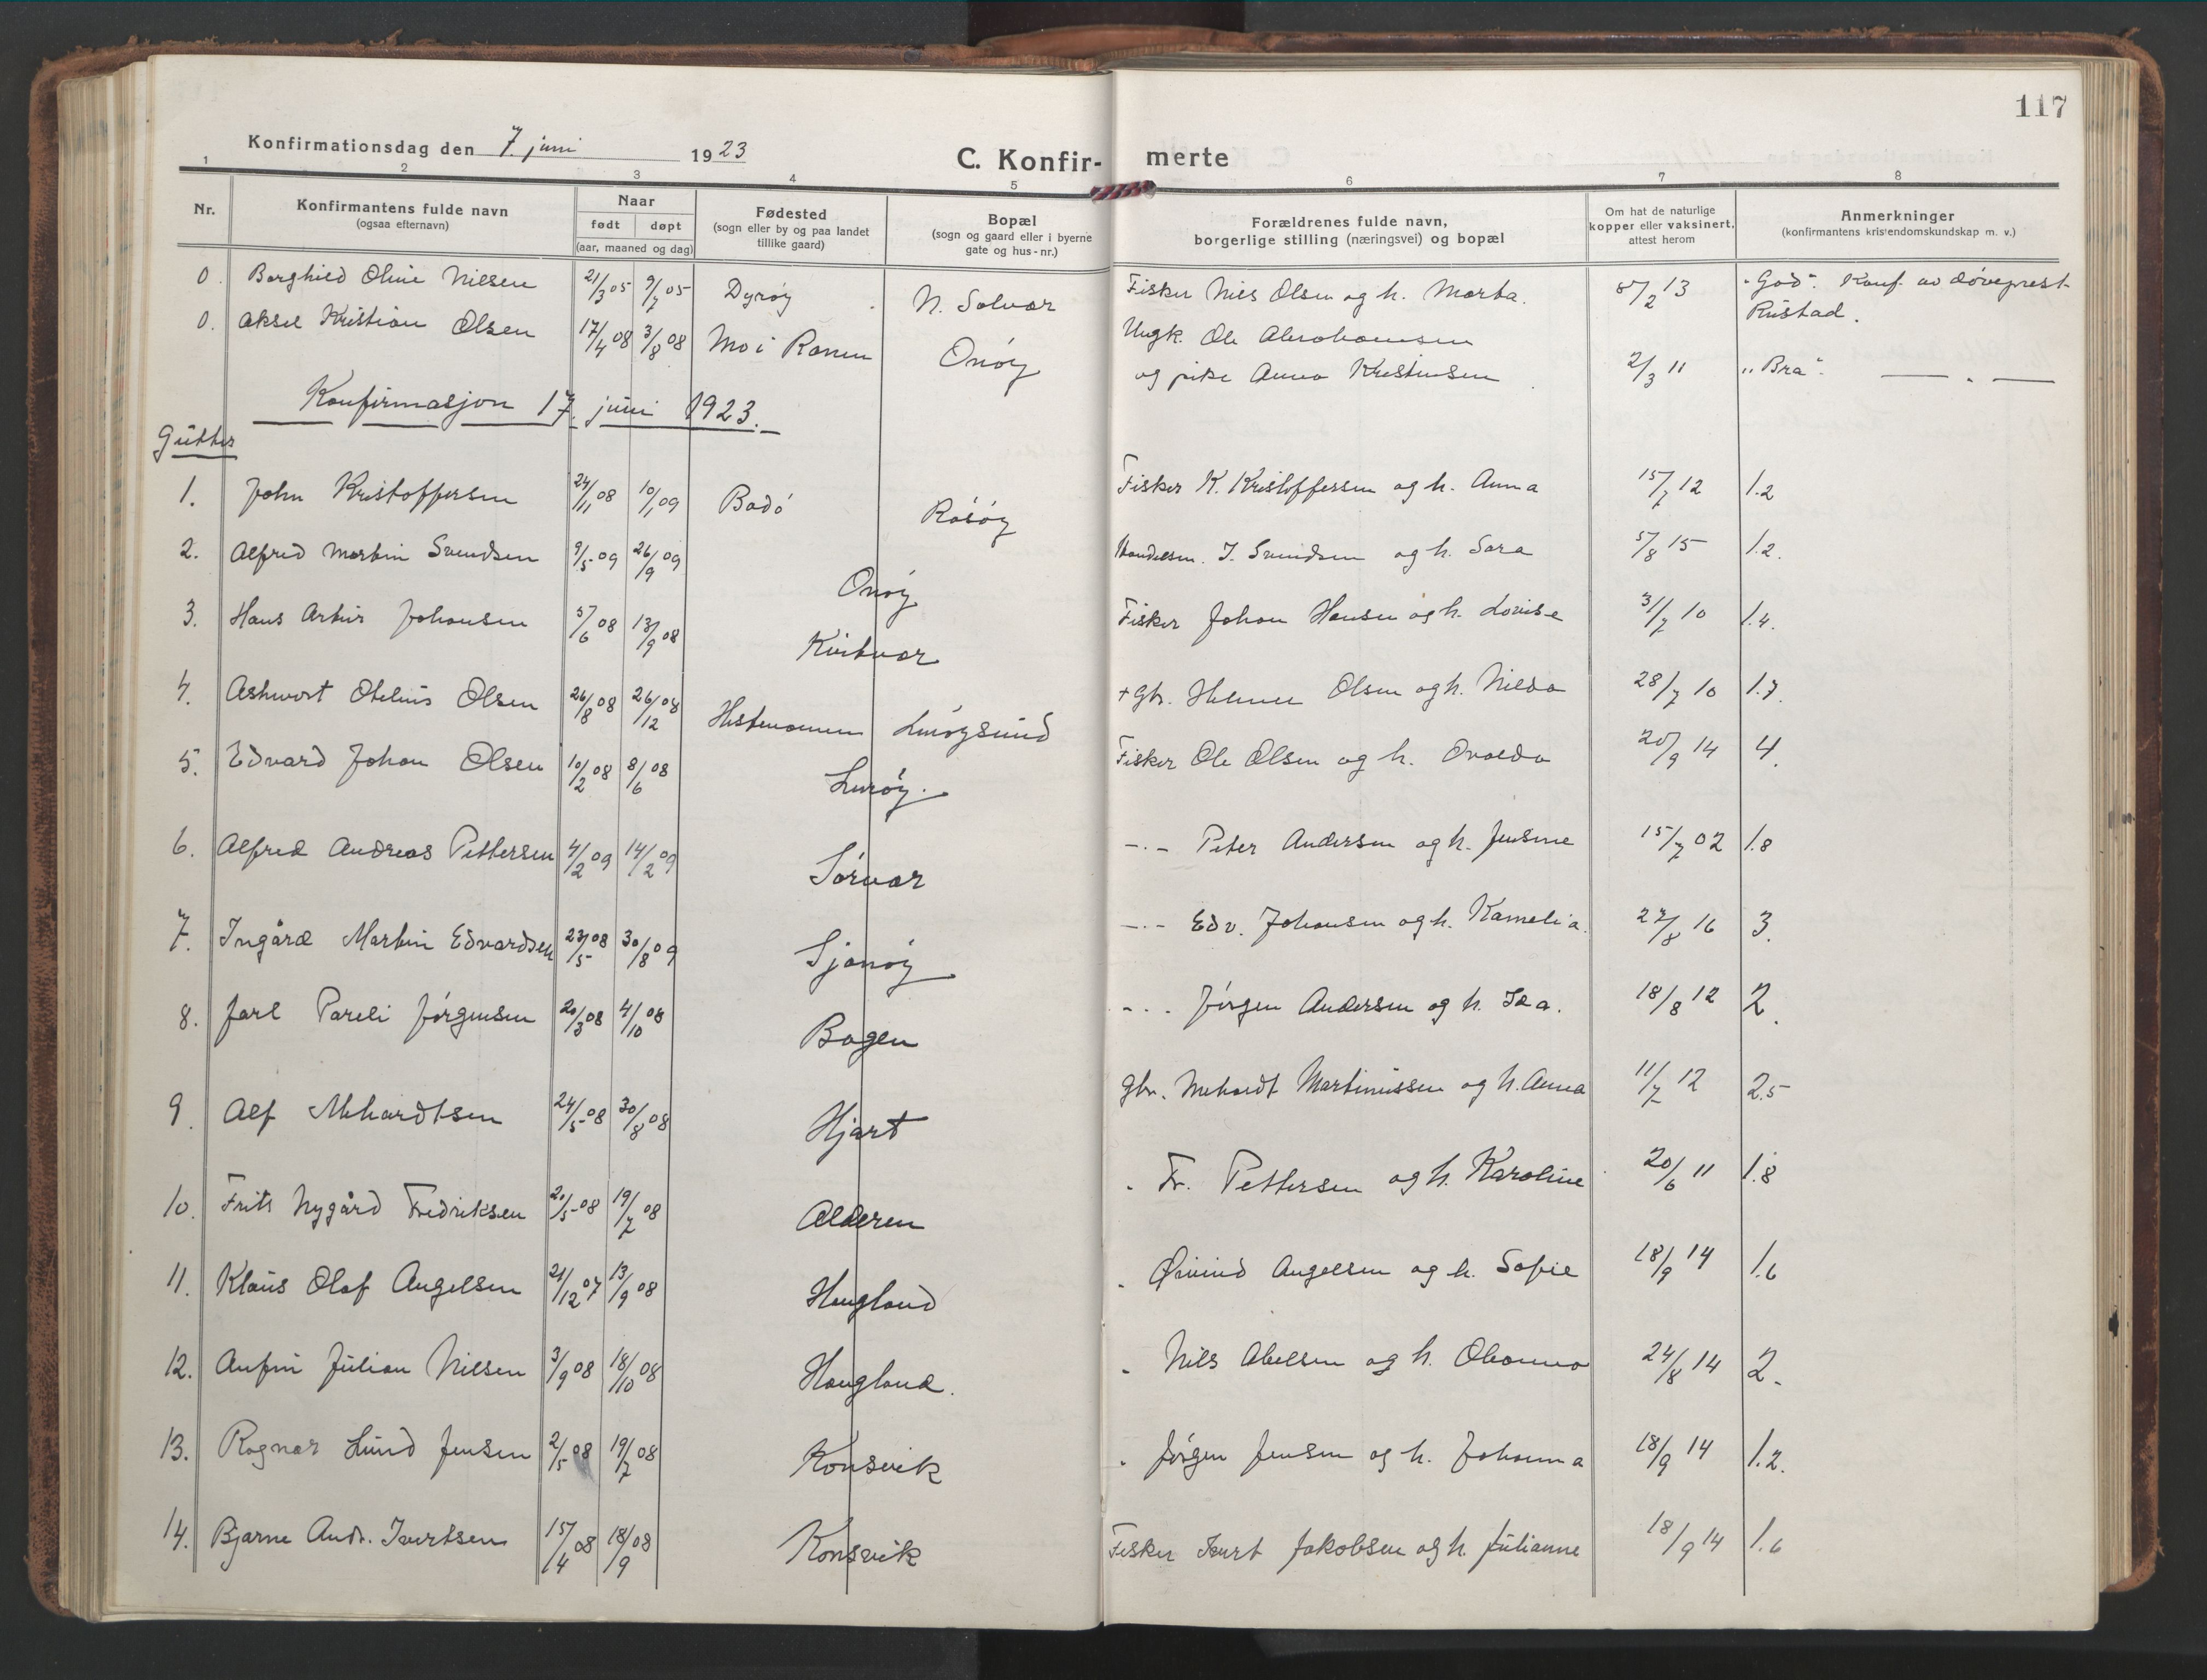 117
Konfirmationsdag den 7. juni 1923
C. Konfirmerte
1 2 3 4 5 6 7 8
Nr. Konfirmantens fulde navn (ogsaa efternavn) Naar født døpt (aar, maaned og dag) Fødested (sogn eller by og paa landet tillike gaard) Bopæl (sogn og gaard eller i byerne gate og hus-nr.) Forældrenes fulde navn, borgerlige stilling (næringsvei) og bopæl Om hat de naturlige kopper eller vaksinert, attest herom Anmerkninger (konfirmantens kristendomskundskap m. v.)
0. Borghild Oline Nilsen 21/3 05 9/7 05 Dyrøy N. Solvær Fisker Nils Olsen og h. Marta. 8/2 13 "God". Konf. av døveprest Rustad.
0. Aksel Kristian Olsen 17/4 08 3/8 08 Mo i Ranen Onøy Ungk. Ole Abrahamsen
og pike Anna Kristensen 2/3 11 "Bra". — " —
Konfirmasjon 17. juni 1923.
Gutter
1. John Kristoffersen 24/11 08 10/1 09 Bodö Råsöy Fisker K. Kristoffersen og h. Anna 15/7 12 1.2
2. Alfred Martin Svendsen 9/5 09 26/9 09 Onöy Handelsm. J. Svendsen og h. Sara 5/8 15 1.2.
3. Hans Artur Johansen 5/6 08 13/9 08 Kvitvær Fisker Johan Hansen og h. Lovise 31/7 10 1.4.
4. Ashwort Otelius Olsen 26/8 08 26/12 08 Hestmannen Luröysund + gbr. Helmer Olsen og h. Nilda 28/7 10 1.7.
5. Edvard Johan Olsen 10/2 08 8/6 08 Luröy. Fisker Ole Olsen og h. Ovalda 20/9 14 4.
6. Alfred Andreas Pettersen 4/2 09 14/2 09 Sörvær -.- Peter Andersen og h. Jensine 15/7 02 1.8
7. Ingård Martin Edvardsen 23/5 08 30/8 09 Sjonöy -.- Edv. Johansen og h. Kamelia. 27/8 16 3.
8. Jarl Pareli Jörgensen 20/3 08 4/10 08 Bogen -.- Jörgen Andersen og h. Ida. 18/8 12 2.
9. Alf Mehardtsen 24/5 08 30/8 08 Hjart gbr. Mehardt Martinussen og h. Anna 11/7 12 2.5
10. Frits Nygård Fredriksen 20/5 08 19/7 08 Alderen " Fr. Pettersen og h. Karoline 20/6 11 1.8
11. Klaus Olaf Angelsen 21/12 07 13/9 08 Haugland " Øivind Angelsen og h. Sofie 18/9 14 1.6
12. Anfin Julian Nilsen 3/9 08 18/10 08 Haugland. " Nils Abelsen og h. 24/8 14 2.
13. Ragnar Lund Jensen 2/5 08 19/7 08 Konsvik " Jörgen Jensen og h. Johanna 18/9 14 1.2.
14. Bjarne Andr. Ivertsen 15/4 08 18/9 08 Konsvik Fisker Ivert Jakobsen og h. Julianne 18/9 14 1.6